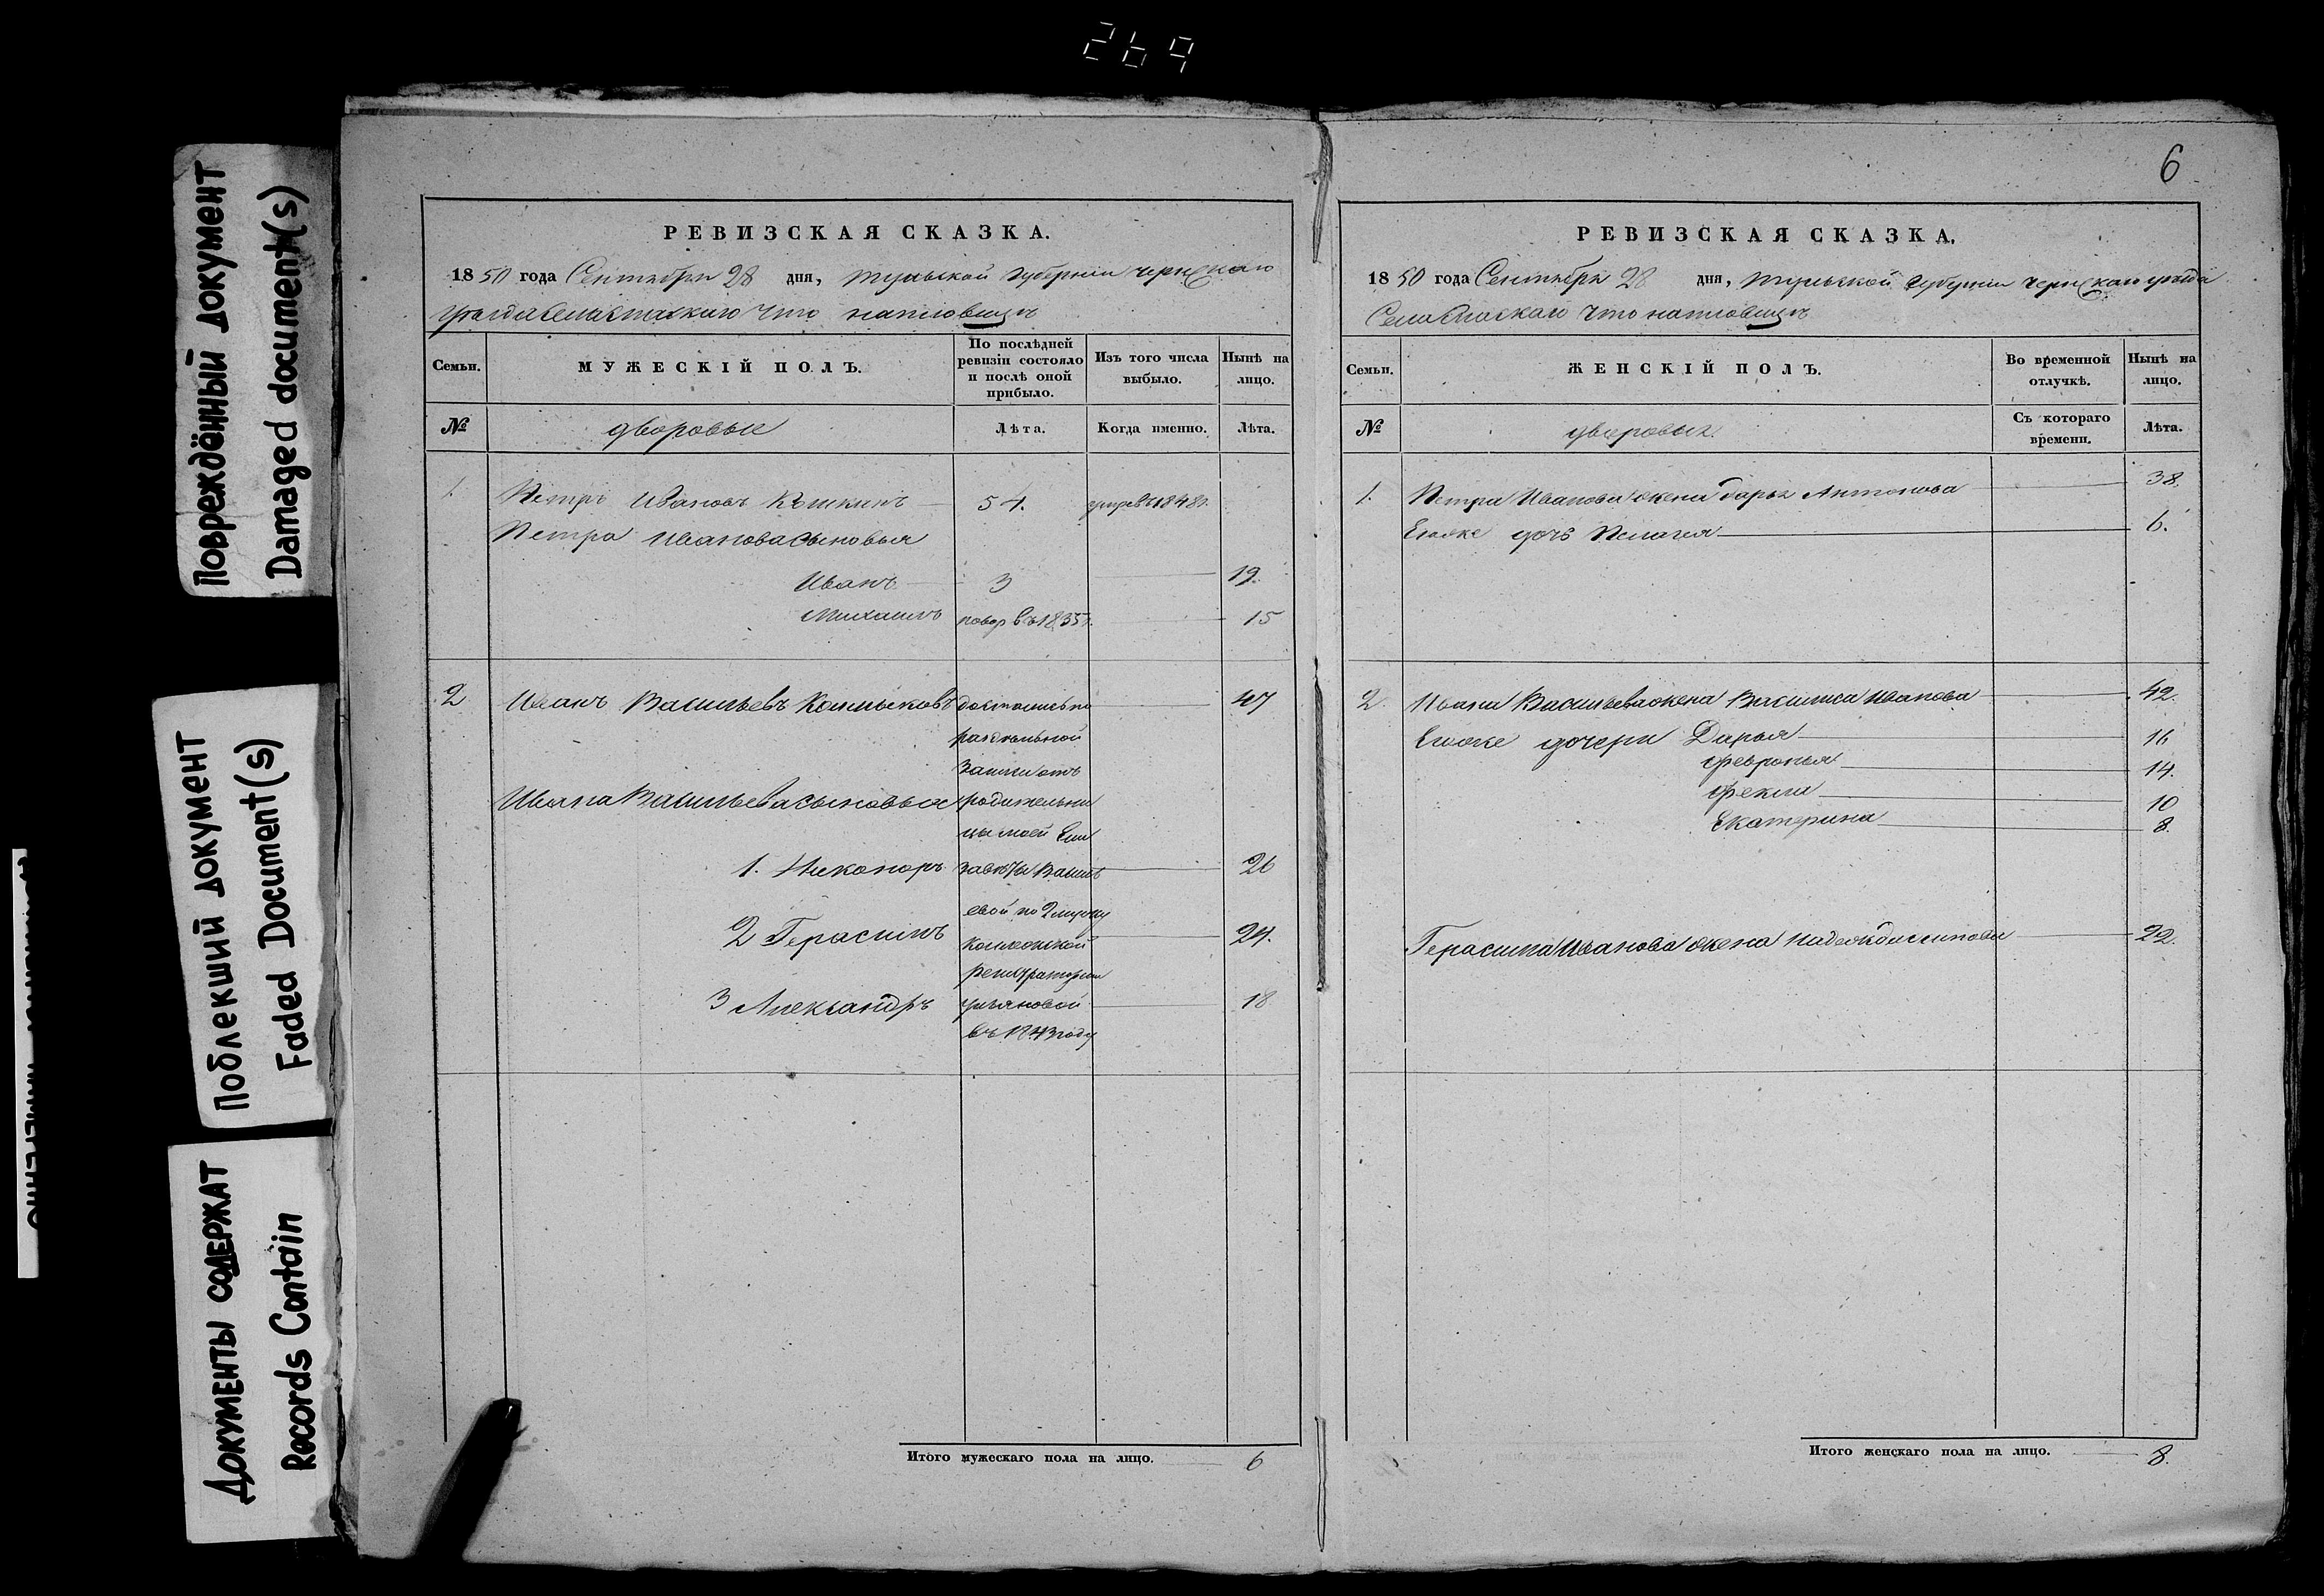 264
Повреждённый документ
Damaged document(s)
Поблекший документ
Faded Document(s)
Документы содержат
Records Contain
РЕВИЗСКАЯ СКАЗКА.
1850 года Сентября 28 дня, тульской губернiи чернскаго
уезда Села Спаскаго что
Семьи.
МУЖЕСКІЙ ПОЛЪ.
По послѣдней ревизіи состояло и послѣ оной прибыло.
Изъ того числа выбыло.
Нынѣ на лицо.
№ дворовые Лѣта. Когда именно. Лѣта.
1. Петръ Ивановъ 54. 1848г.
Петра Иванова сыновья
Иванъ 3 19.
Михаилъ въ 1835г. 15
2 Иванъ Васильевъ достались по 47
раздельной
записи отъ
Ивана Васильева сыновья родительни
цы моей Ели
1. Никоноръ заветы Василь 26
евой по 2 мужу
2 Герасимъ колежской 24.
регистраторши
3 Александръ 18
въ 1843 году
Итого мужескаго пола на лицо. 6
6
РЕВИЗСКАЯ СКАЗКА.
1850 года Сентября 28 дня, тульской губернiи чернскаго уезда
Села Спаскаго что
Семьи.
ЖЕНСКІЙ ПОЛЪ.
Во временной отлучкѣ.
Нынѣ на лицо.
№ дворовыя Съ котораго времени. Лѣта.
1. Петра Иванова жена Дарья Антонова 38.
Егоже дочь Пелагея 6.
2. Ивана Васильева жена Василиса Иванова 42.
Егоже дочери Дарья 16
Февронья 14.
Фекла 10
Екатерина 8.
Герасима Иванова жена Надежда 22.
Итого женскаго пола на лицо. 8.